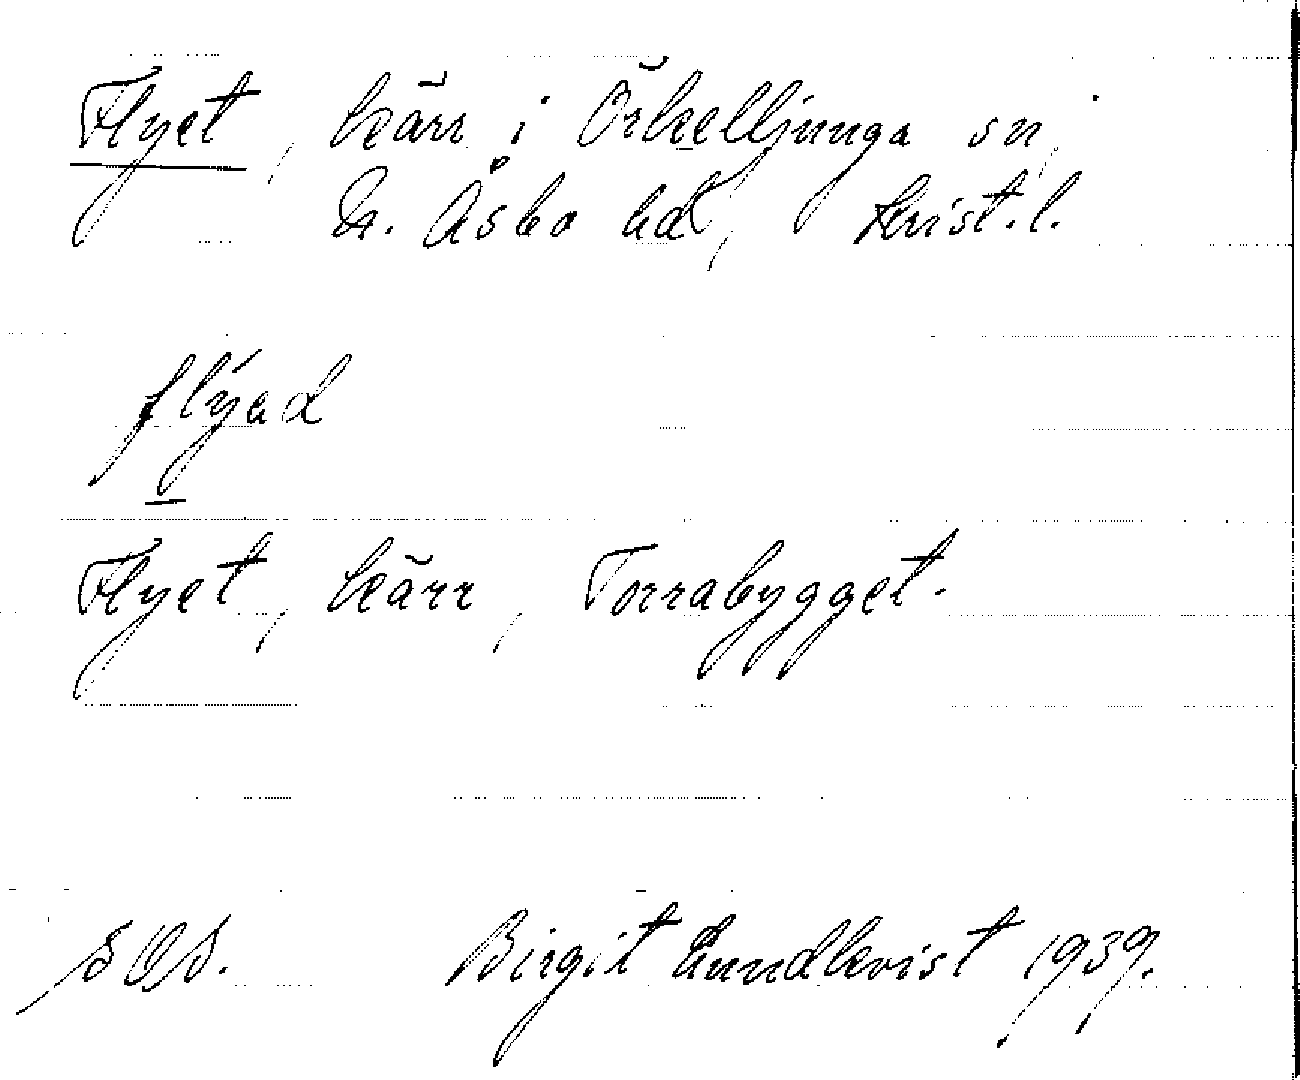 Flyet, kärr i Örkelljunga sn,
N. Åsbo hd, Krist. l.
flýad
Flyet, kärr, Torrabygget.
SOD. Birgit Lundkvist 1939.